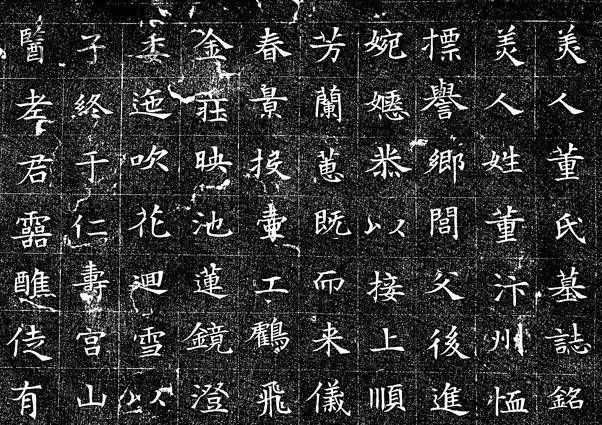 美人董氏墓誌銘
美人姓董汴州恤
摽譽鄉閭父後進
婉嬺恭以接上順
芳蘭蕙既而来儀
春景投壺工鶴飛
金莊映池蓮鏡澄
委迤吹花迴雪以
子終于仁壽宮山
醫老君靈醮徒有